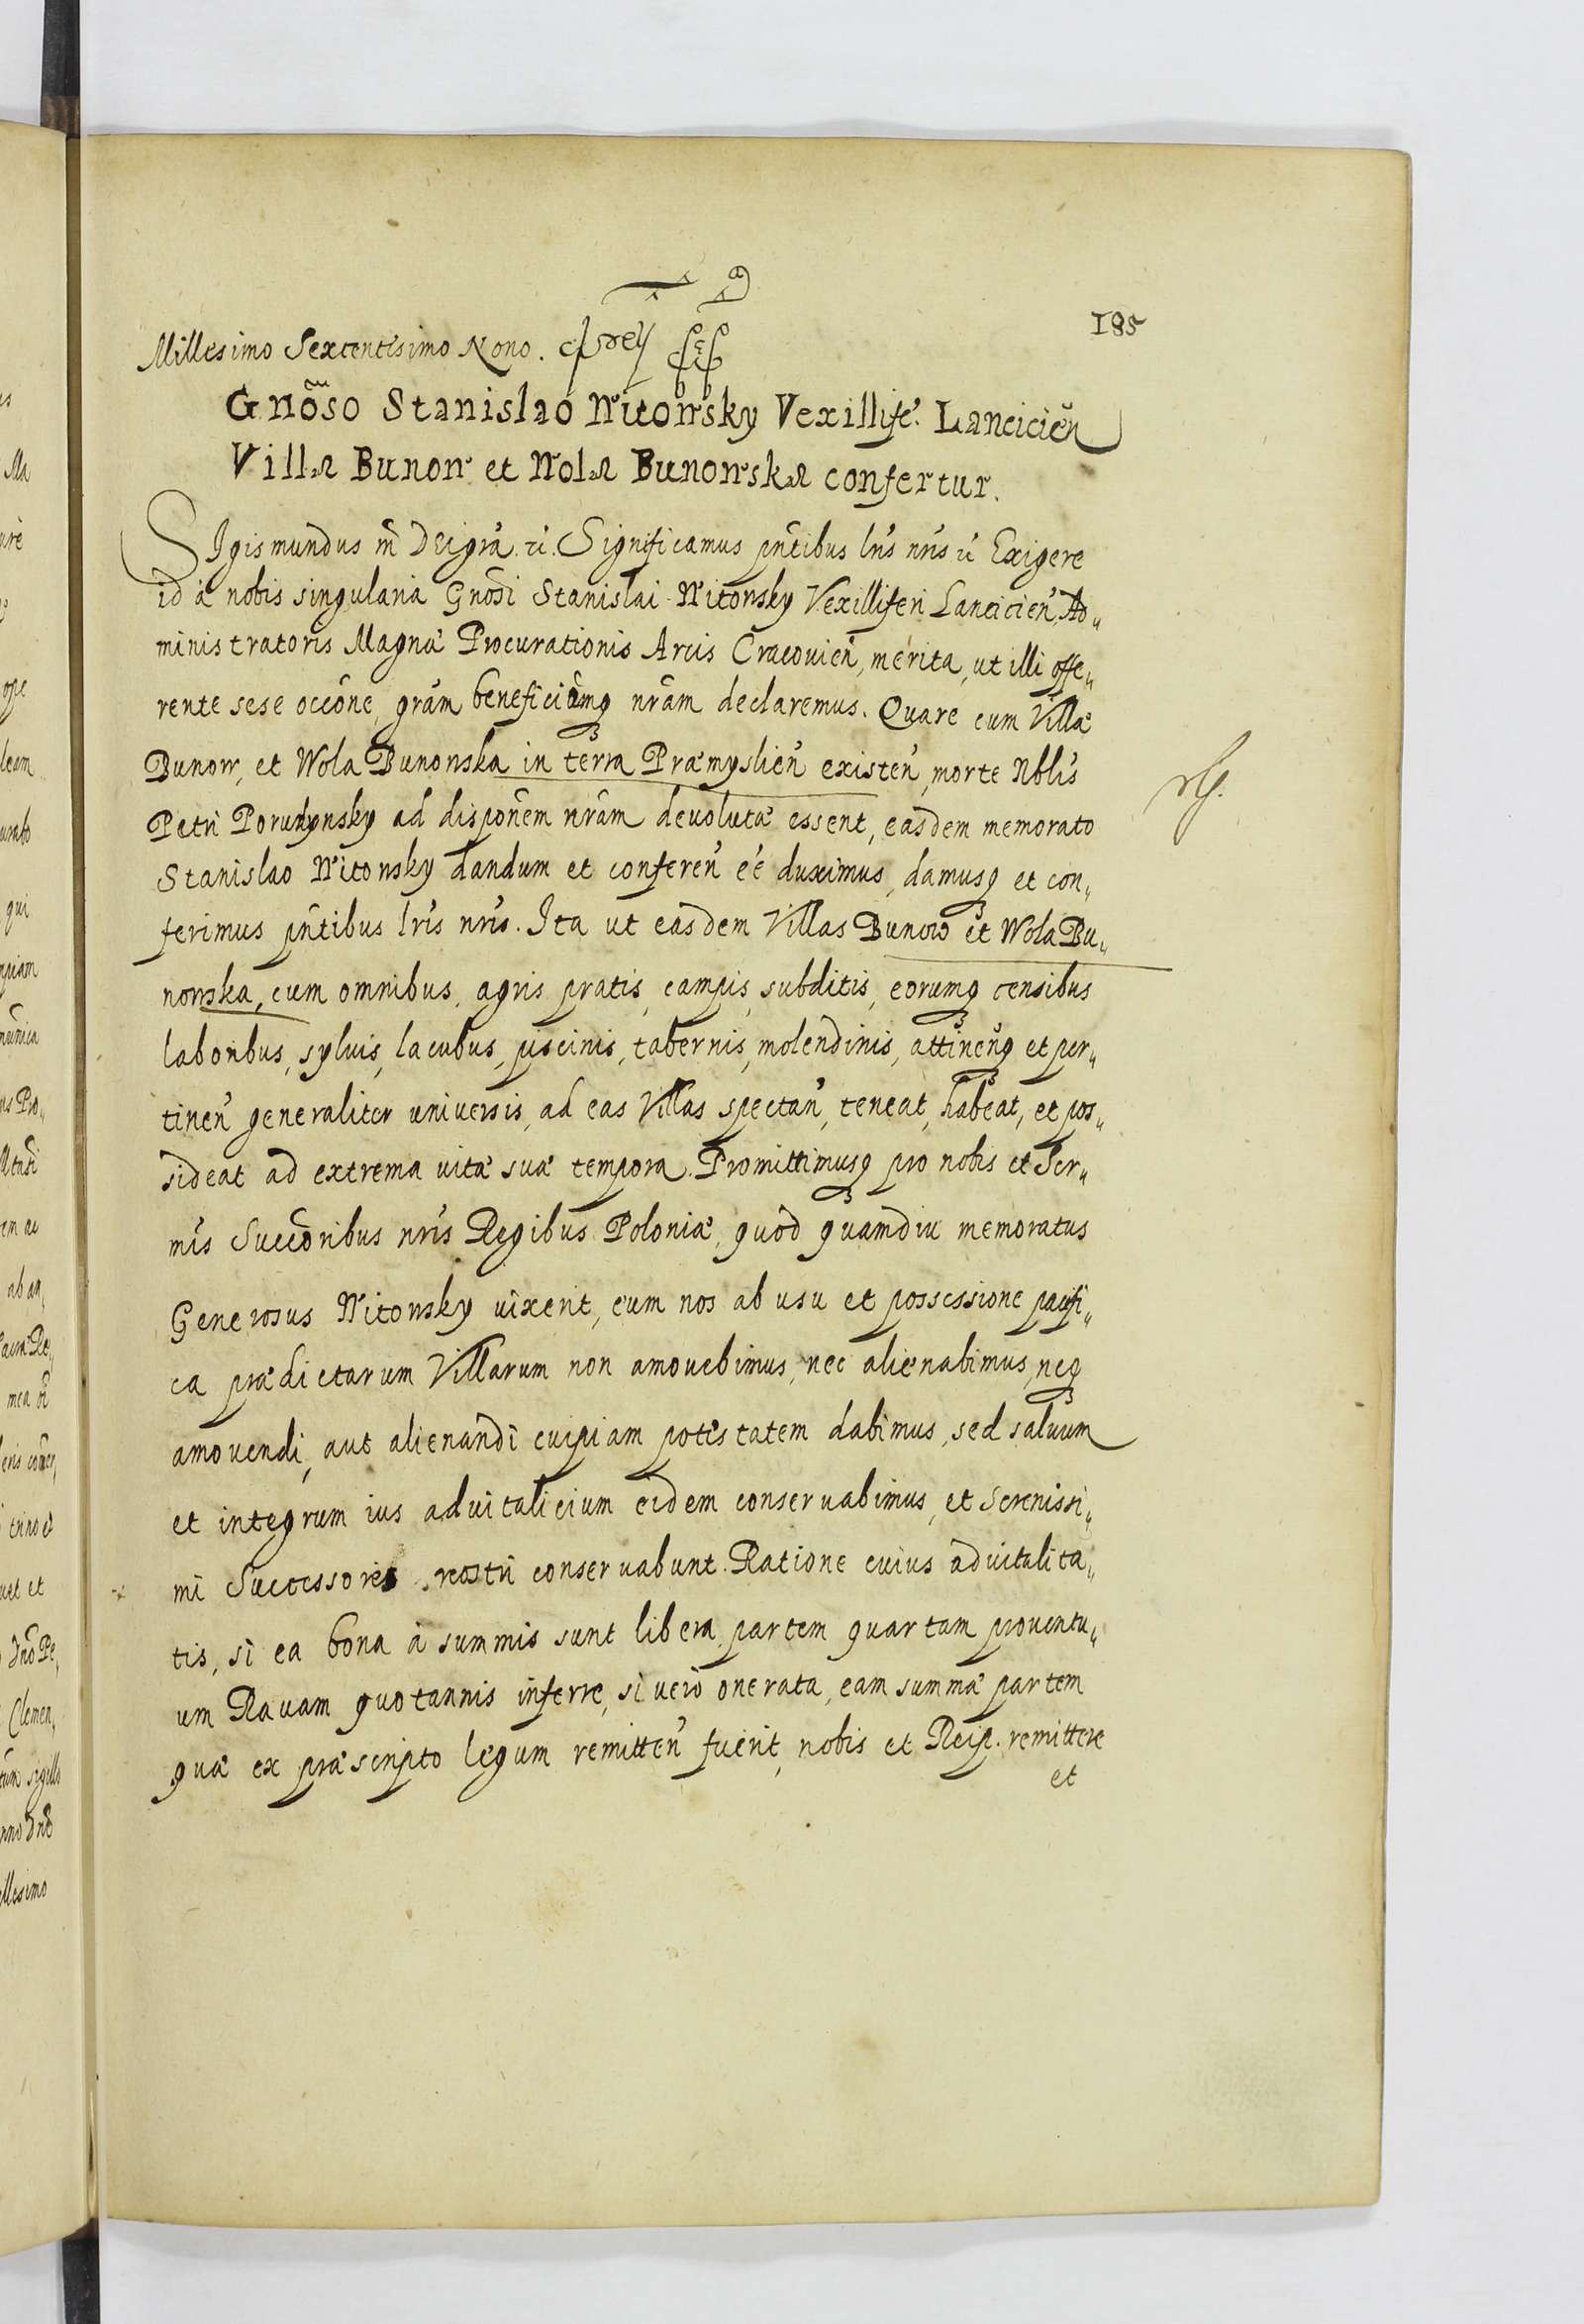 185
Millesimo Sexcentesimo Nono.
Gnõso Stanislao Witowsky Vexillife. Lancicień
Villæ Bunow et Wolæ Bunowskæ confertur.
SIgismundus III Dei grã. &. Significamus pñtibus lris nris & Exigere
id à nobis singularia Gnosi Stanislai Witowsky Vexilliferi Lancicień, Ad„
ministratoris Magnæ Procurationis Arcis Cracovień, merita, ut illi offe„
rente sese occõne, grãm beneficiãmq nrãm declaremus. Quare cum Villæ
Bunow, et Wola Bunowska in terra Præmyslień existeñ, morte Nblis
Petri ad disponẽm nrãm devolutæ essent, easdem memorato
Stanislao Witowsky dandum et confereñ ẽe duximus, damusq et con„
ferimus pñtibus lris nris. Ita ut easdem Villas Bunow et Wola Bu„
nowska, cum omnibus, agris pratis, campis, subditis, eorumq censibus
laboribus, syluis, lacubus, piscinis, tabernis, molendinis, attineñq et per„
tineñ generaliter universis, ad eas Villas spectañ, teneat, habeat, et pos„
sideat ad extrema vitæ suæ tempora. Promittimusq pro nobis et Ser„
mis Succõribus nris Regibus Poloniæ, quod quamdiu memoratus
Generosus Witowsky vixerit, eum nos ab usu et possessione pacifi„
ca prædictarum Villarum non amovebimus, nec alienabimus, neq
amovendi, aut alienandi cuipiam potestatem dabimus, sed salvum
et integrum ius advitalicium eidem conservabimus, et Serenissi„
mi Successores nostri conservabunt. Ratione cuius advitalita„
tis, si ea bona à summis sunt libera, partem quartam proventu„
um Ravam quotannis inferre, si vero onerata, eam summæ partem
quæ ex præscripto legum remitteñ fuerit, nobis et Reip. remittere
et